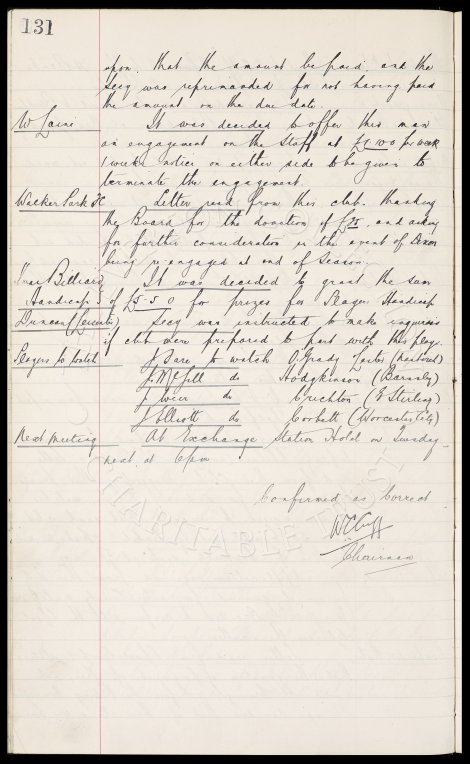 131
upon. that the amount be paid, and the
Secy was reprimanded for not having paid
the amount on the due date.
W Laird It was decided to offer this man
an engagement on the staff at £1.10.0 per week
1 weeks notice on either side to be given to
terminate the engagement.
Walker Park FC Letter read from this club. thanking
the Board for the donation of £25. and asking
for further consideration in the event of Dixon
being re engaged at end of Season.
Billiard It was decided to grant the sum
Handicap of £5-5-0 for prizes for Players Handicap
Duncan (Leicester) Secy was instructed to make inquiries
if club were prepared to part with this player.
Players to watch J Dare to watch O'Grady
J. McGill do Hodgkinson (Barnsley)
J Weir do Crichton (E Stirling)
J Elliott do Corbett (Worcester City)
Next Meeting At Exchange Station Hotel on Tuesday
next at 6pm
Confirmed as Correct
W C Cuff
Chairman
CHARITABLE TRUST